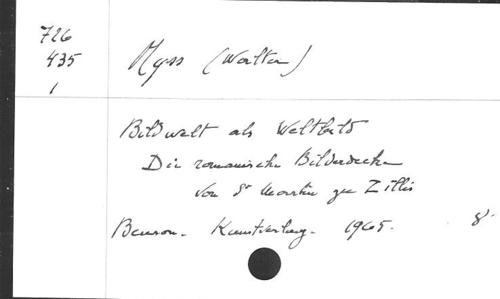 726
435
1
Myss (Walter)
Bildwelt als Weltbild
Die romanische Bilderdecke
von St Martin zu Zillis
Beuron. Kunstverlag. 1965. 8°